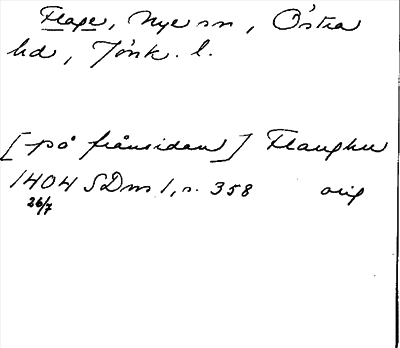 Flape, Nye sn, Östra
hd, Jönk. l.
[på frånsidan] Flaughu
1404 SDns 1, n. 358 orig
26/7